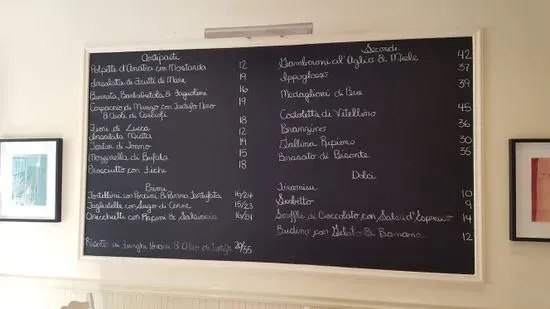 Antipasti
Polpette d'Anatra con Mostarda 12
Insalata di Frutti di Mare 19
Burrata, Barbabietola & Fagiolini 16
Carpaccio di Manzo con Tartufo Nero 19
& Cuori di Carciofi
Fiori di Zucca 18
Insalata Mista 12
Tartar di Tonno 19
Mozzarella di Bufala 15
Prosciutto con Fichi 18
Primi
Tortellini con Porcini & Panna Tartufata 16/24
Tagliatelle con Sugo di Carne 15/23
Orecchiette con Rapini & Salsiccia 16/24
Risotto ai Funghi & Olio di Tartufo 20/35
Secondi
Gamberoni al' Aglio & Miele 42
Ippoglosso 37
Medaglioni di Bue 39
Costoletta di Vitellino 45
Branzino 36
Gallina Ripieno 30
Brasato di Bisonte 35
Dolci
Tiramisu 10
Sorbetto 9
Soufflé di Cioccolato con Salsa d'Espresso 14
Budino con Gelato & Banana 12